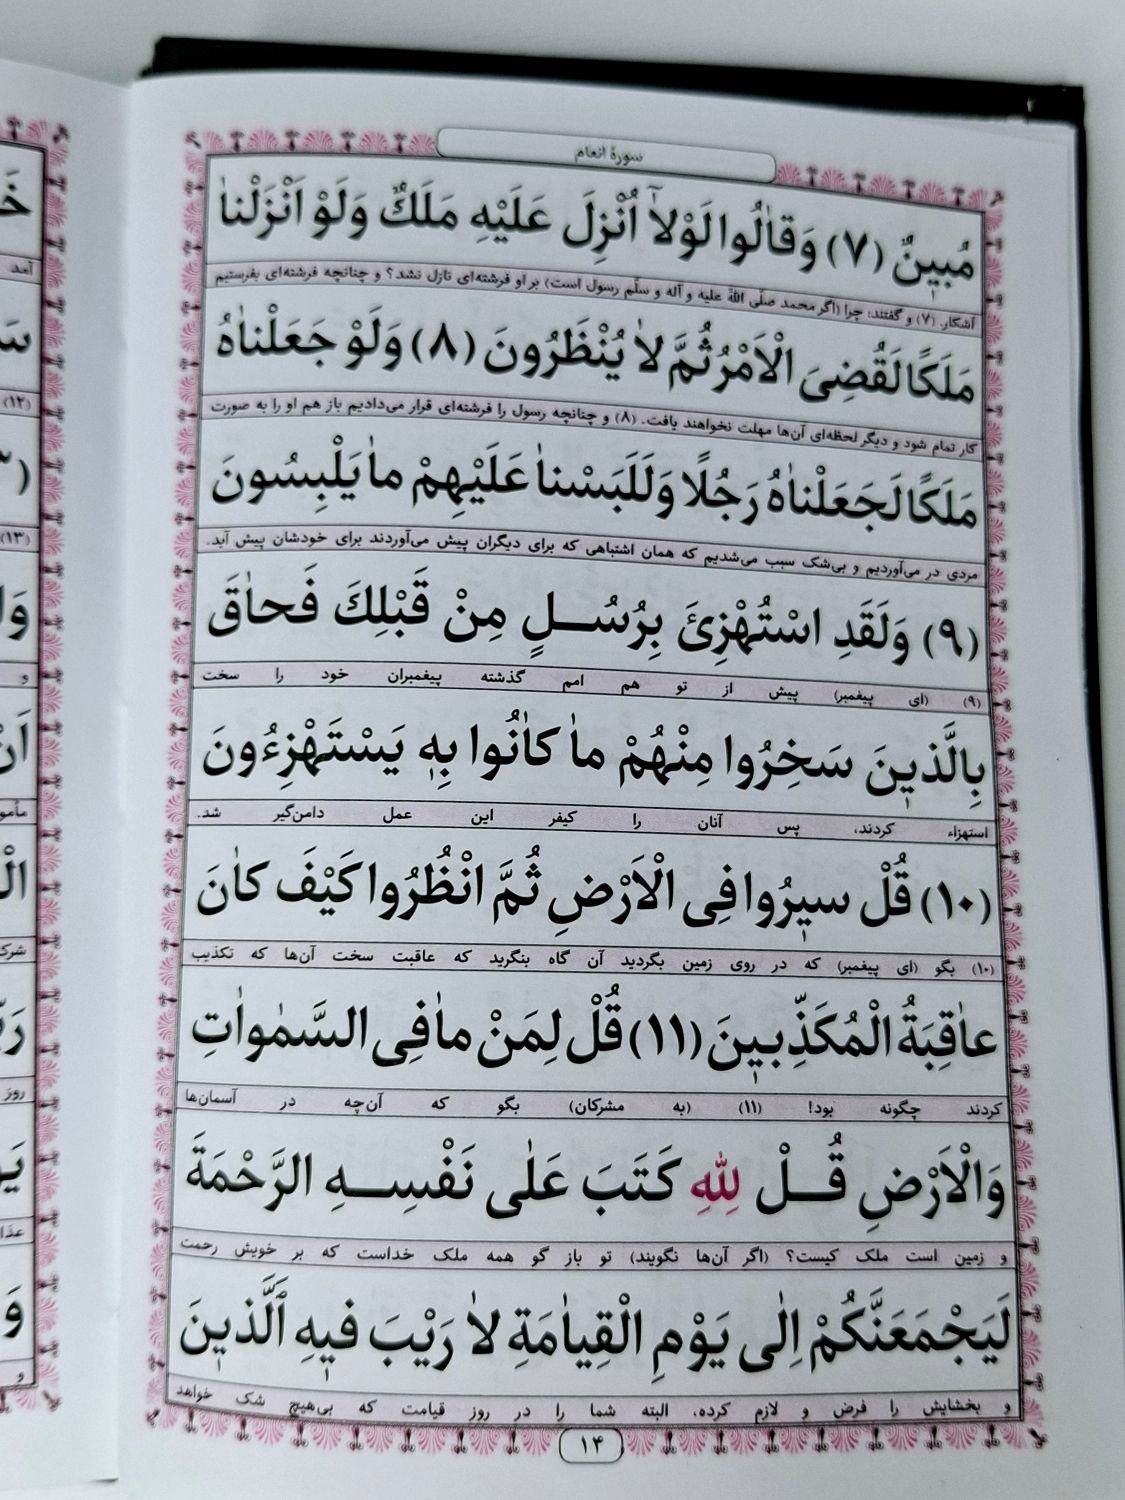 سورهٔ انعام
مُبینٌ (۷) وَقالُوا لَوْلاۤ اُنْزِلَ عَلَیْهِ مَلَكٌ وَلَوْ اَنْزَلْنا
آشکار. (۷) و گفتند: چرا (اگر محمد صلّی اللهُ علیه و آله و سلّم رسول است) بر او فرشته‌ای نازل نشد؟ و چنانچه فرشته‌ای بفرستیم
مَلَكًا لَقُضِیَ الْاَمْرُ ثُمَّ لا یُنْظَرُونَ (۸) وَلَوْ جَعَلْناهُ
کار تمام شود و دیگر لحظه‌ای آن‌ها مهلت نخواهند یافت. (۸) و چنانچه رسول را فرشته‌ای قرار می‌دادیم باز هم او را به صورت
مَلَكًا لَجَعَلْناهُ رَجُلًا وَلَلَبَسْنا عَلَیْهِمْ ما یَلْبِسُونَ
مردی در می‌آوردیم و بی‌شک سبب می‌شدیم که همان اشتباهی که برای دیگران پیش می‌آوردند برای خودشان پیش آید.
(۹) وَلَقَدِ اسْتُهْزِئَ بِرُسُلٍ مِنْ قَبْلِكَ فَحاقَ
(۹) (ای پیغمبر) پیش از تو هم امم گذشته پیغمبران خود را سخت
بِالَّذینَ سَخِرُوا مِنْهُمْ ما كانُوا بِهٖ یَسْتَهْزِءُونَ
استهزاء کردند، پس آنان را کیفر این عمل دامن‌گیر شد.
(۱۰) قُلْ سیرُوا فِی الْاَرْضِ ثُمَّ انْظُرُوا كَیْفَ كانَ
(۱۰) بگو (ای پیغمبر) که در روی زمین بگردید آن گاه بنگرید که عاقبت سخت آن‌ها که تکذیب
عاقِبَةُ الْمُكَذِّبینَ (۱۱) قُلْ لِمَنْ ما فِی السَّمٰواتِ
کردند چگونه بود! (۱۱) (به مشرکان) بگو که آن‌چه در آسمان‌ها
وَالْاَرْضِ قُلْ لِلّٰهِ كَتَبَ عَلٰی نَفْسِهِ الرَّحْمَةَ
و زمین است ملک کیست؟ (اگر آن‌ها نگویند) تو باز گو همه ملک خداست که بر خویش رحمت
لَیَجْمَعَنَّكُمْ اِلٰی یَوْمِ الْقِیامَةِ لا رَیْبَ فیهِ اَلَّذینَ
و بخشایش را فرض و لازم کرده، البته شما را در روز قیامت که بی‌هیچ شک خواهد
۱۴